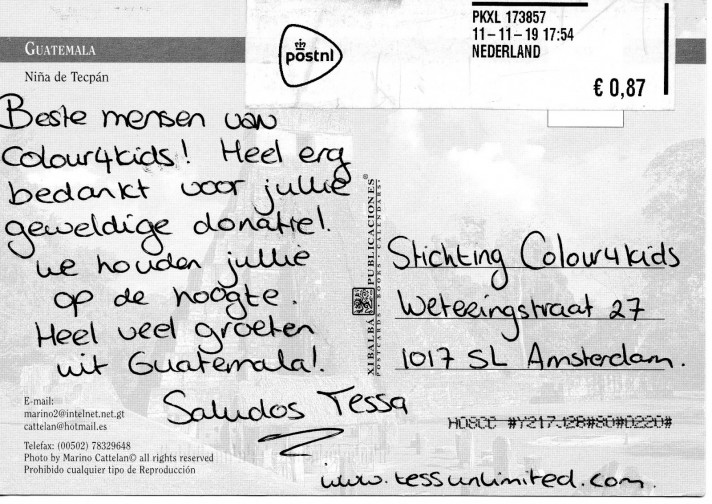 GUATEMALA
Niña de Tecpán
postnl
PKXL 173857
11-11-19 17:54
NEDERLAND
€ 0,87
Beste mensen van
Colour4kids! Heel erg
bedankt voor jullie
geweldige donatie!.
We houden jullie
op de hoogte.
Heel veel groeten
uit Guatemala!.
Saludos Tessa
XIBALBÁ PUBLICACIONES®
POSTCARDS · BOOKS · CALENDARS·
Stichting Colour4kids
Weteringstraat 27
1017 SL Amsterdam.
HOSCC #Y217J28#80#0220#
E-mail:
marino2@intelnet.net.gt
cattelan@hotmail.es
Telefax: (00502) 78329648
Photo by Marino Cattelan© all rights reserved
Prohibido cualquier tipo de Reproducción
www.tessunlimited.com.